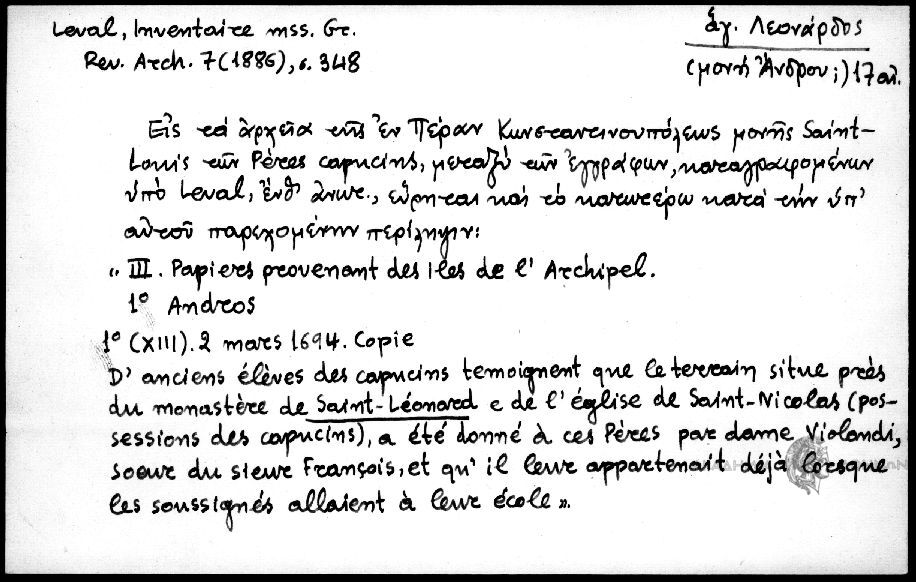 Leval, Inventaire mss. Gr.
Rev. Arch. 7 (1886), σ. 348
ἁγ. Λεονάρδος
(μονή Ἄνδρου;) 17 αἰ.
Εἰς τά ἀρχεῖα τῆς ἐν Πέραν Κωνσταντινουπόλεως μονῆς Saint-
Louis τῶν Pères capucins, μεταξύ τῶν ἐγγράφων, καταγραφομένων
ὑπό Leval, ἔνθ' ἄνωτ., εὕρηται καί τό κατωτέρω κατά τήν ὑπ'
αὐτοῦ παρεχομένην περίληψιν:
„ III. Papiers provenant des Iles de l' Archipel.
1º Andros
1º (XIII). 2 mars 1694. Copie
D' anciens élèves des capucins temoignent que le terrain situe près
du monastère de Saint-Léonard e de l' église de Saint-Nicolas (pos-
sessions des capucins), a été donné à ces Pères par dame Violandi,
soeur du sieur François, et qu' il leur appartenait déjà lorsque
les soussignés allaient à leur école ».